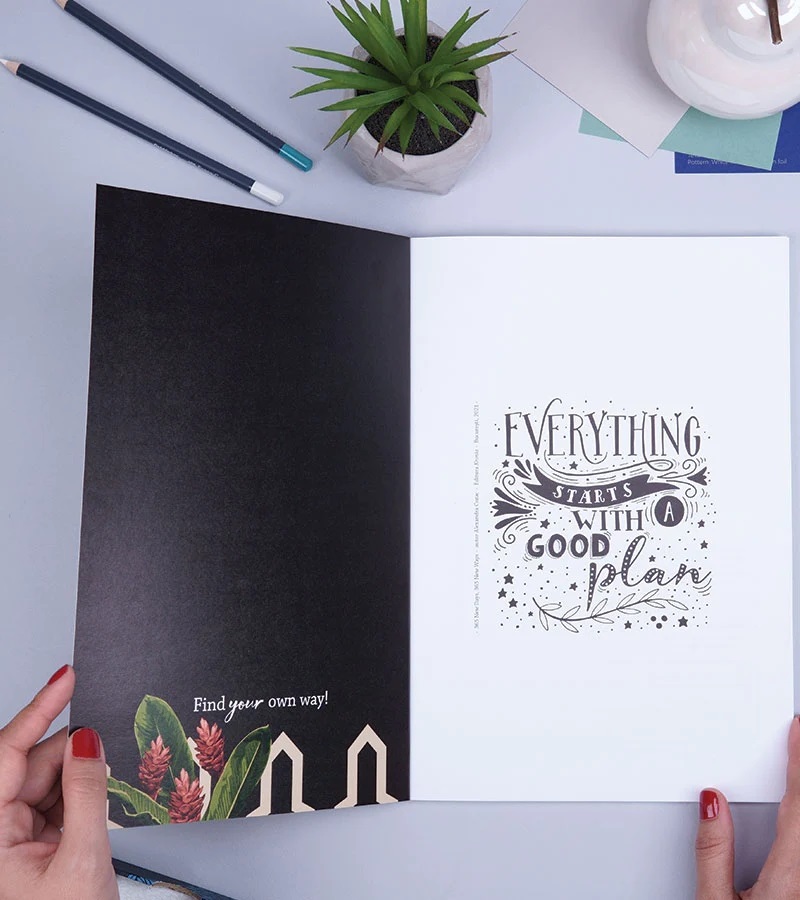 Find your own way!
EVERYTHING
STARTS
WITH A
GOOD
plan
365 New Days, 365 New Ways - autor Alexandra Cosac - Editura Kreativ - București, 2021